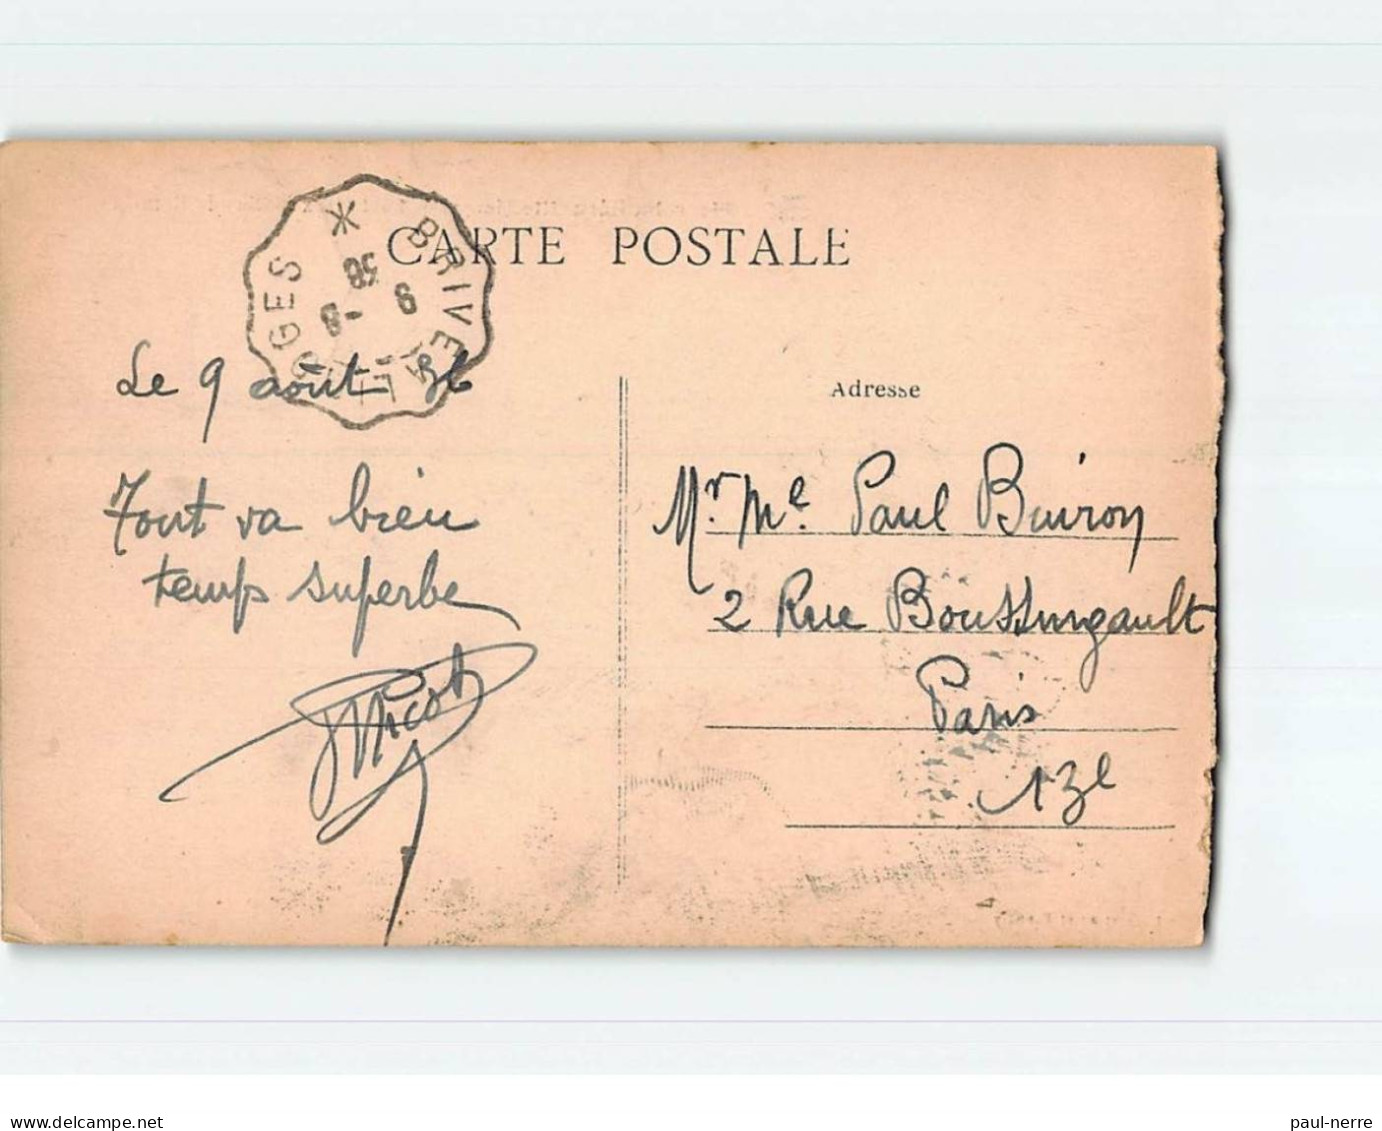 CARTE POSTALE
BRIVE A LIMOGES *
9 -8
36
Le 9 août 36
Adresse
Tout va bien
temps superbe
Nicot
Mr. Me. Paul Buiron
2 Rue Boussingault
Paris
13e
delcampe.net
paul-nerre